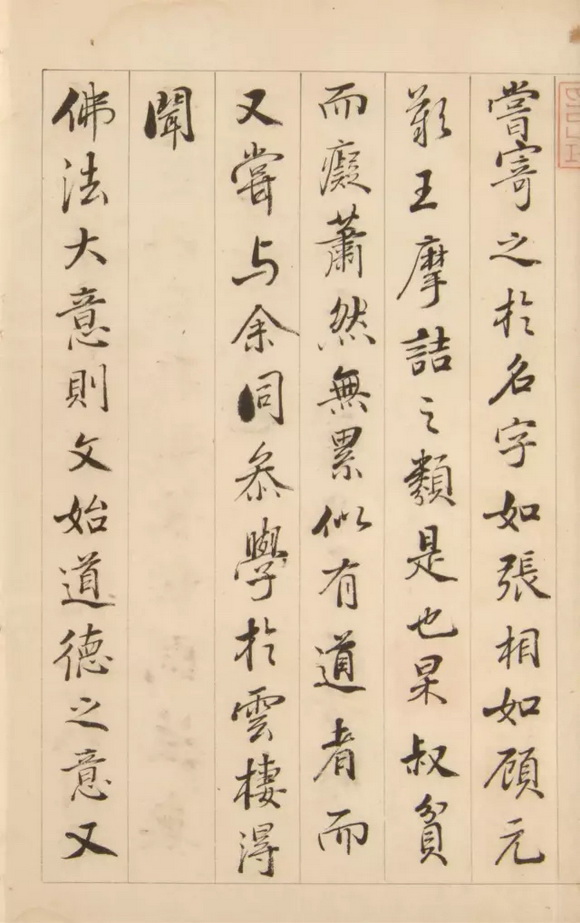 嘗寄之於名字如張相如顧元
歎王摩詰之類是也杲叔貧
而癡蕭然無累似有道者而
又嘗与余同叅學於雲棲得
聞
佛法大意則文始道德之意又